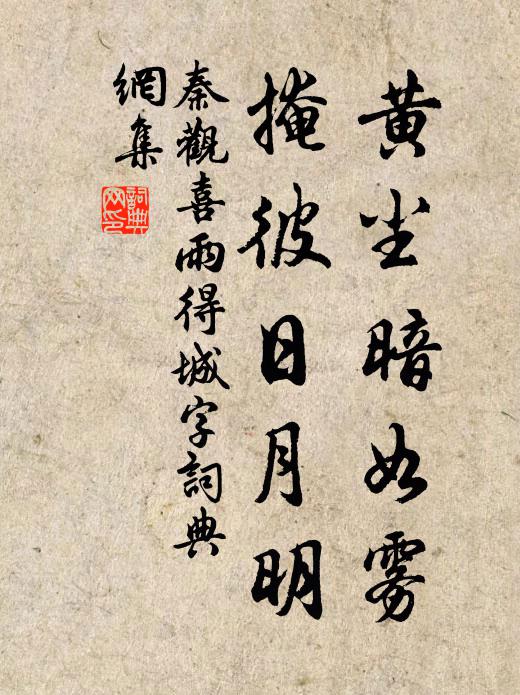 黄尘暗如雾
掩彼日月明
秦觀喜雨得城字詞典
網集
詞典網印